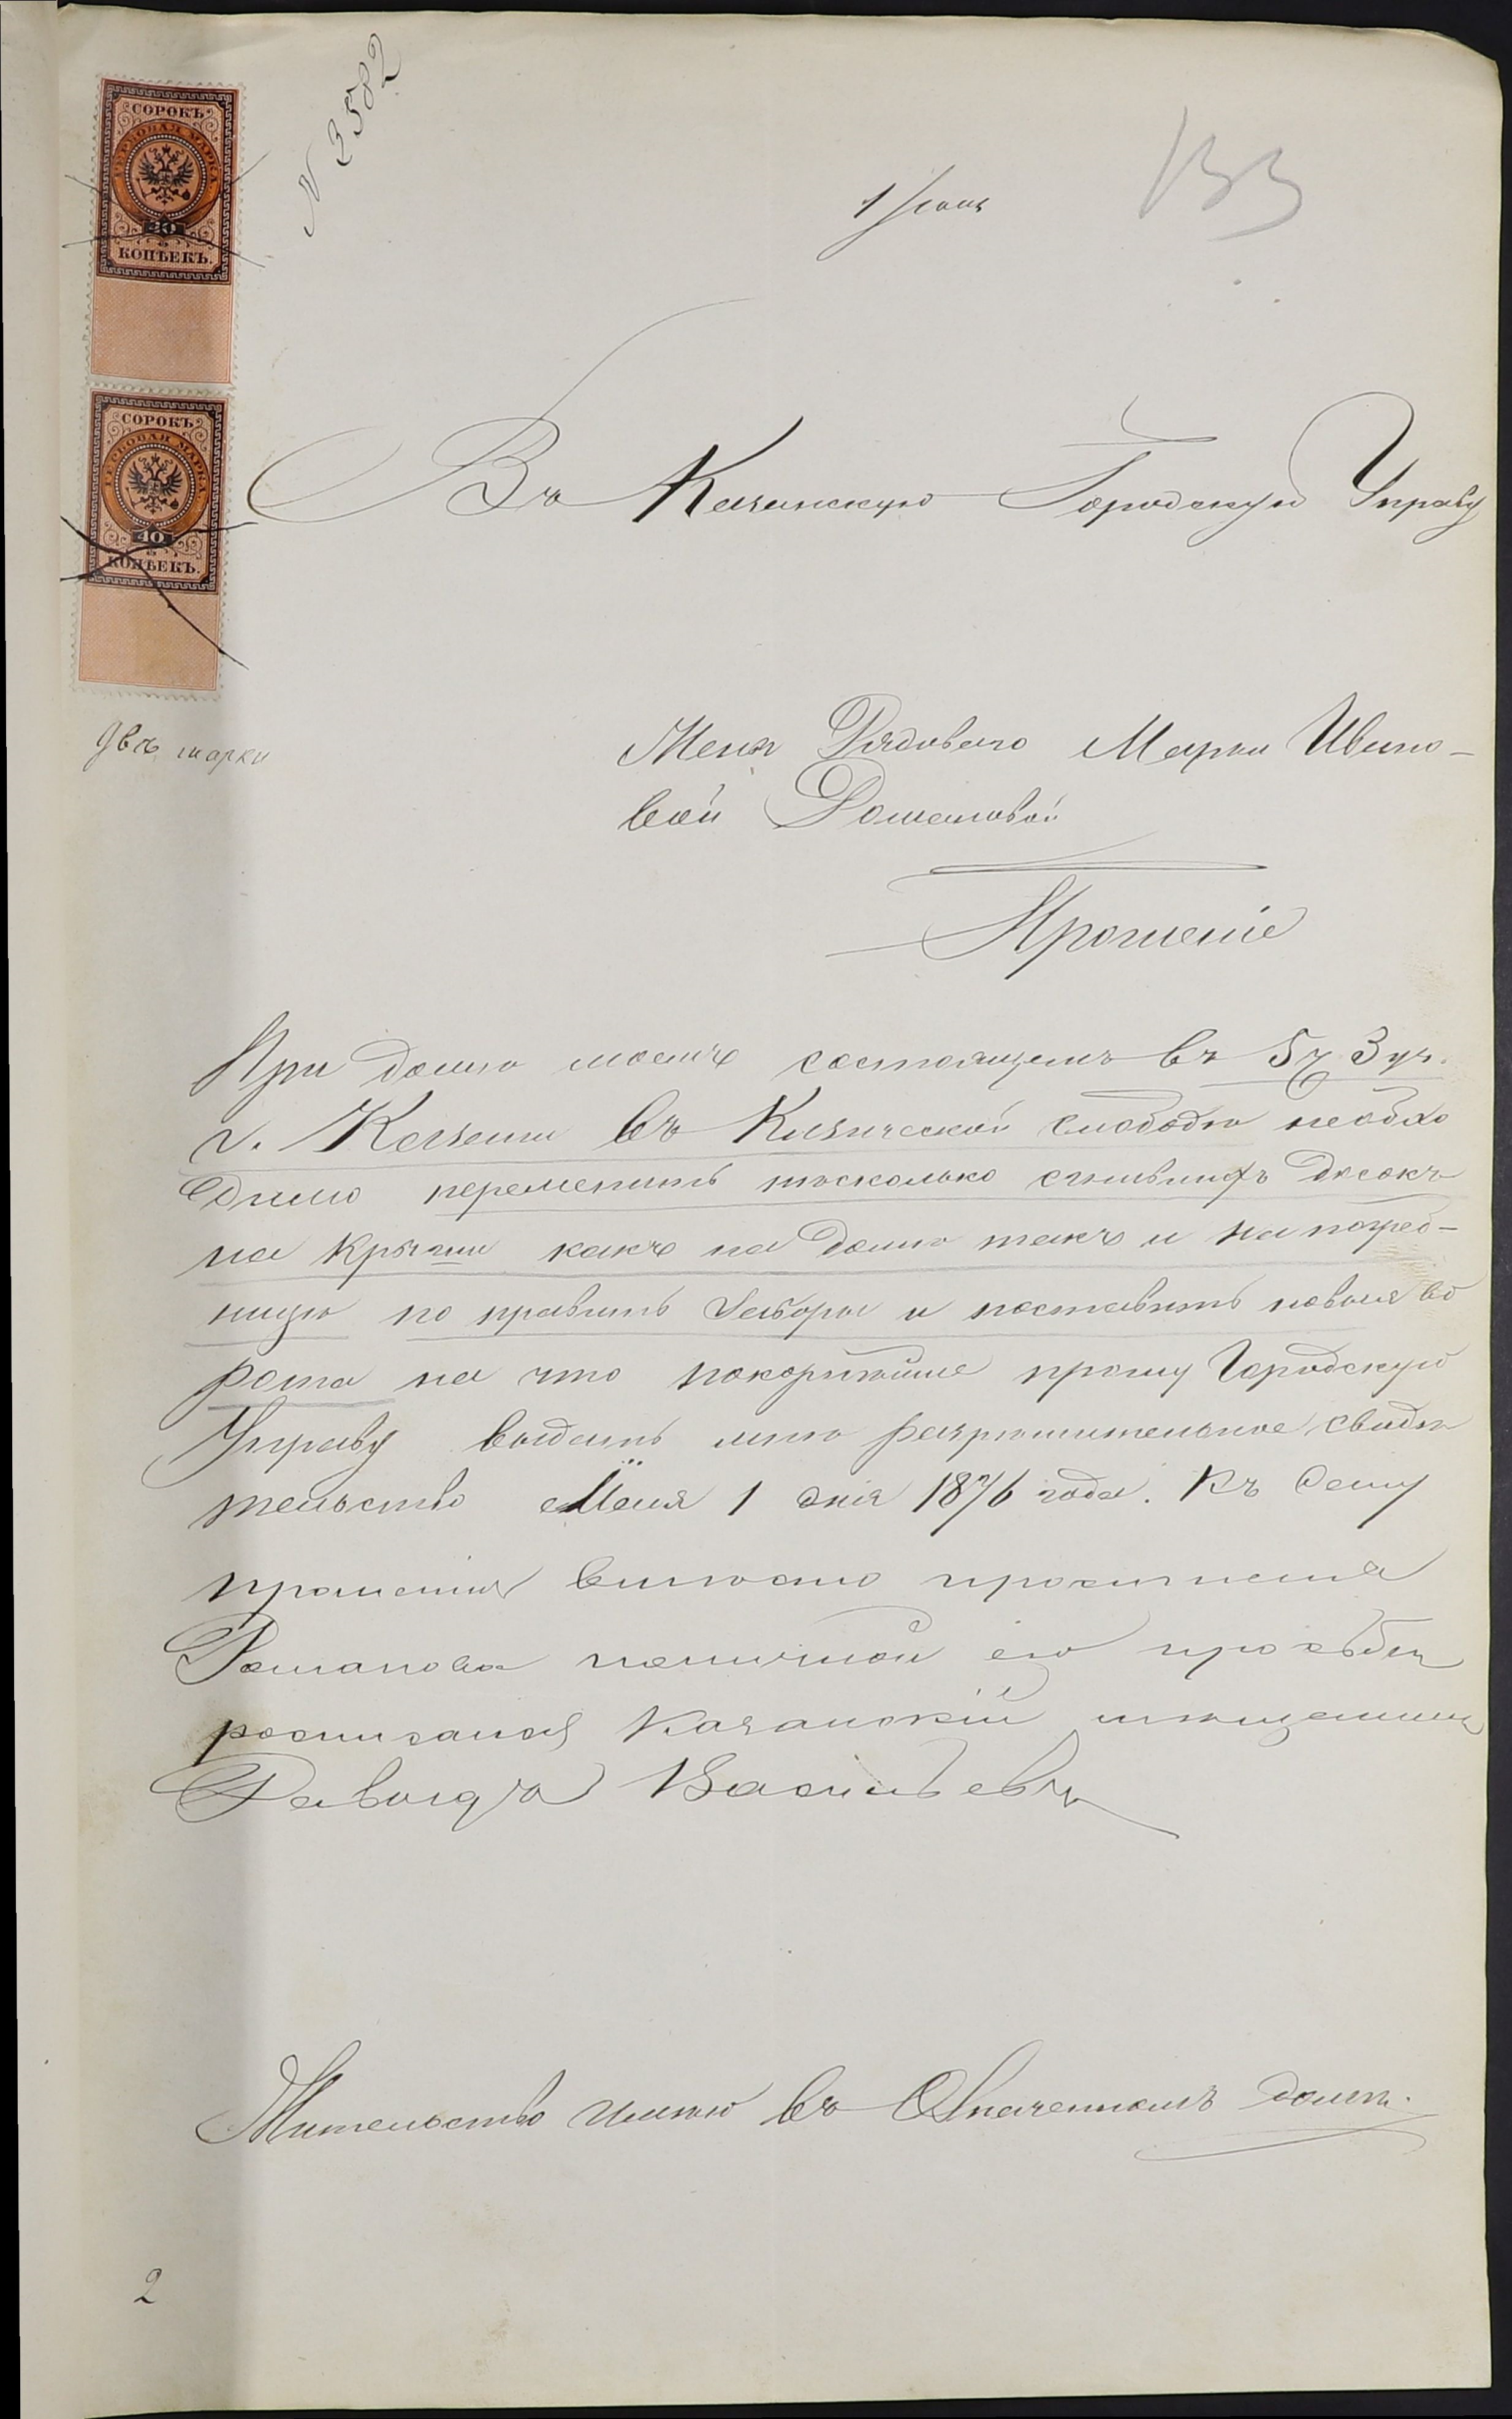 СОРОКЪ
ГЕРБОВАЯ МАРКА
40
КОПѢЕКЪ.
СОРОКЪ
ГЕРБОВАЯ МАРКА
40
КОПѢЕКЪ.
двѣ марки
N 3582
1 Iюня
133
Въ Казанскую Городскую Управу
Жены Рядоваго Марьи Ивано-
вой Романовой
Прошеніе
При домѣ моемъ состоящемъ въ 5 ч 3 уч.
г. Казани въ Кизической слободѣ необхо
димо переменить нѣсколько сгнившихъ досокъ
на крыши какъ на домѣ такъ и на погреб-
ницѣ по править Заборы и поставить новыя во
рота на что покорнѣйше прошу Городскую
Управу выдать мнѣ разрѣшительное свидѣ
тельство Маiя 1 дня 1876 года. Къ Сему
прошению вмѣсто
Романова по личной его просьбы
росписался Казанскiй мѣщанинъ
Васильевъ
Жительство имѣю въ Означенномъ доме.
2